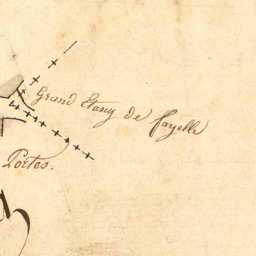 Grand Etang de Fayelle
Portes.